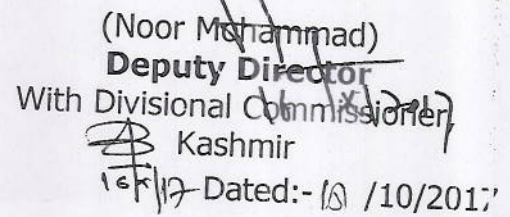 (Noor Mohammad)
Deputy Director
With Divisional Commissioner,
Kashmir
Dated:- /10/2017